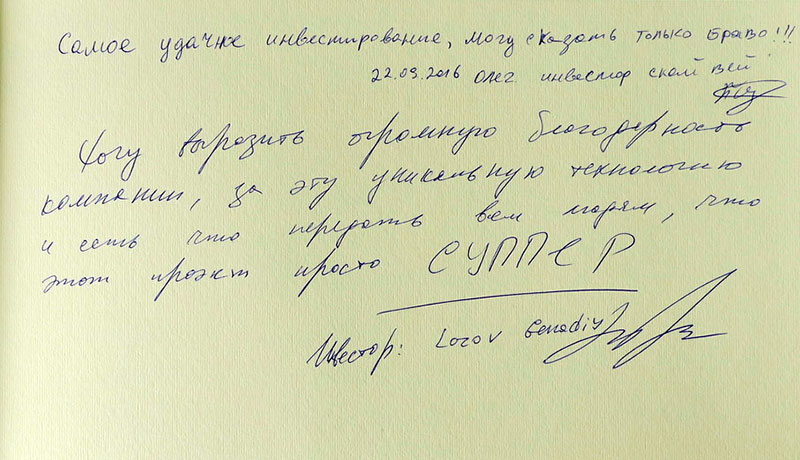 Самое удачне инвестирование, могу сказать только Браво!!!
22.09.2016 Олег инвестор скай вей
Хочу выразить огромную благодарность
компании, за эту уникальную технологию
и есть что передать всем людям, что
этот проэкт просто СУППЕР
Инвестор: Lozov Genadiy